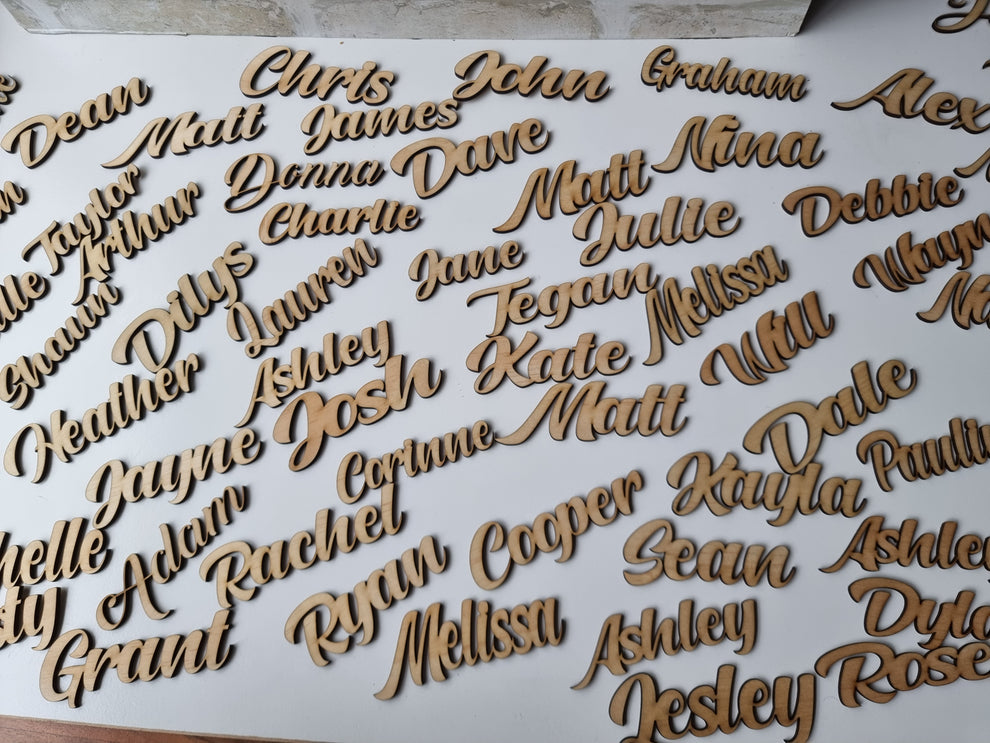 Chris
John
Graham
Dean
Matt
James
Alex
Donna
Dave
Matt
Nina
Taylor
Arthur
Charlie
Julie
Debbie
Shaun
Dilys
Lauren
Jane
Tegan
Melissa
Heather
Ashley
Josh
Kate
Will
Jayne
Corinne
Matt
Dale
Adam
Rachel
Cooper
Kayla
Grant
Ryan
Sean
Melissa
Ashley
Ashley
Lesley
Rose